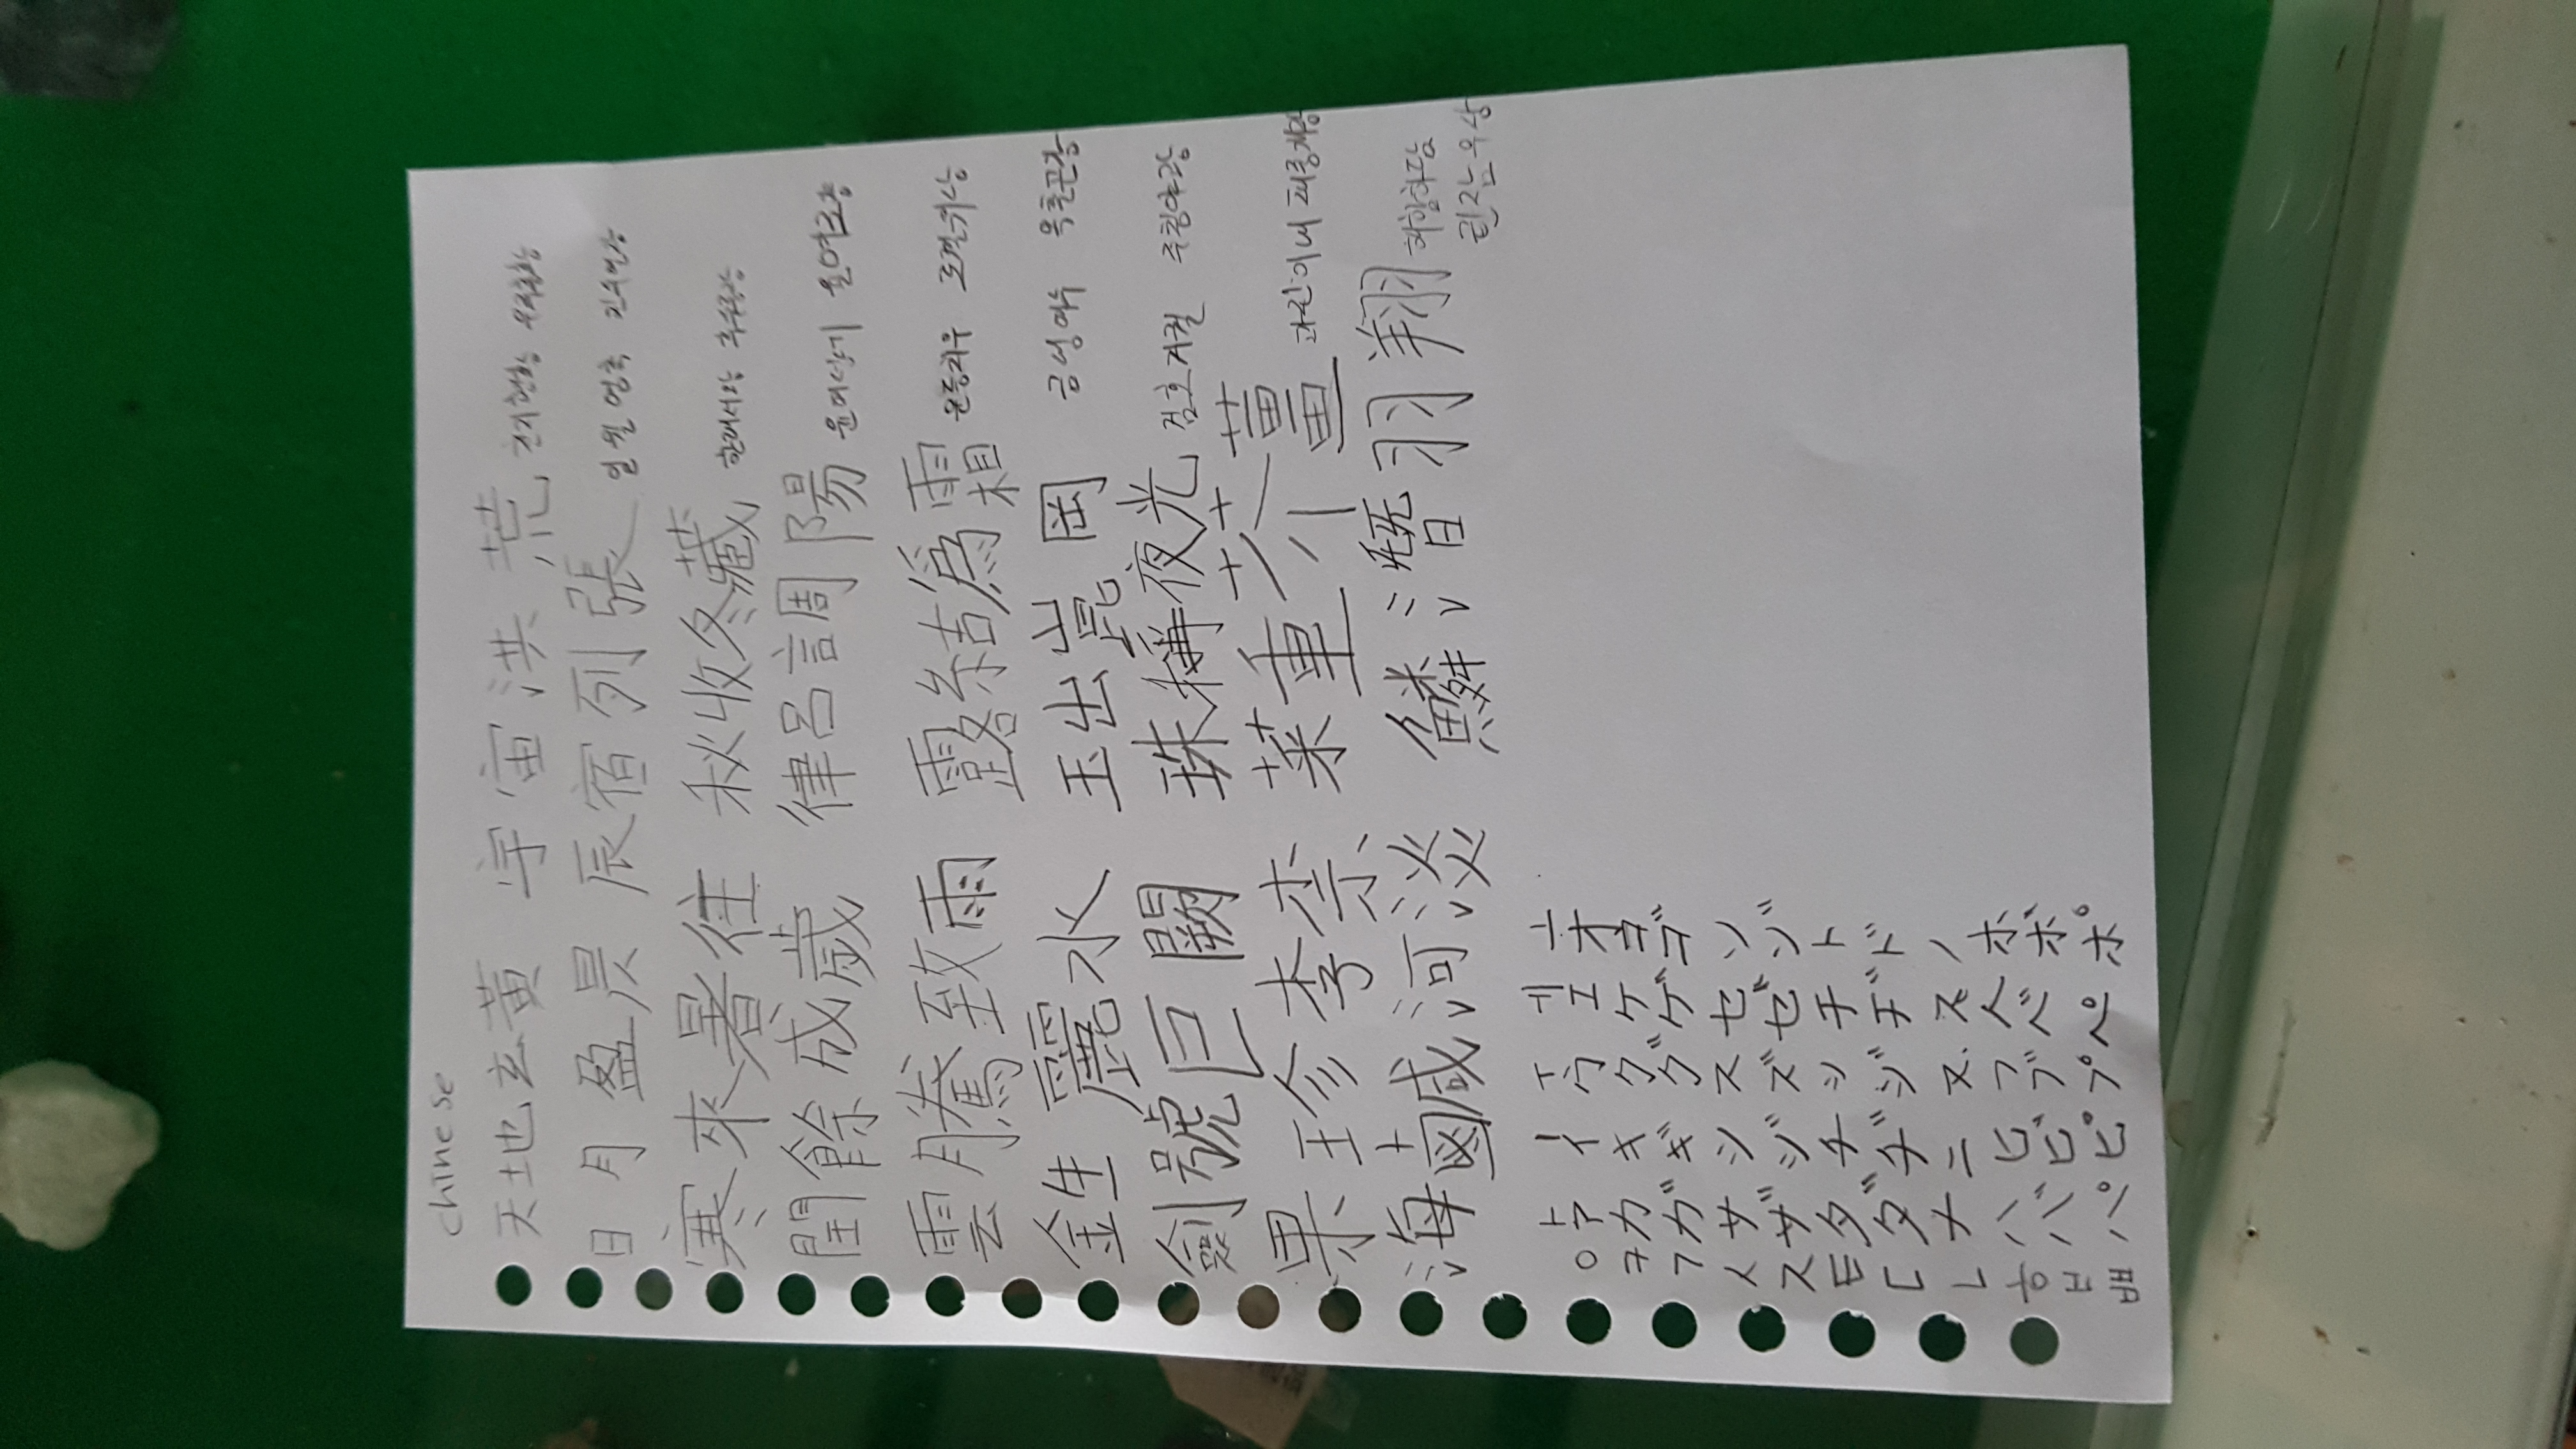 chinese
天地玄黃 宇宙洪荒 천지현황 우주홍황
日月盈昃 辰宿列張 일월영측 진수열장
寒來暑往 秋收冬藏 한래서왕 추수동장
閏餘成歲 律呂調陽 윤여성세 율여조양
雲騰致雨 露結爲霜 운등치우 로결위상
金生麗水 玉出崑岡 금생여수 옥출곤강
劍號巨闕 珠稱夜光 검호거궐 주칭야광
果珍李柰 菜重芥薑 과진이내 채중개강
海鹹河淡 鱗潛羽翔 해함하담
린잠우상
ㅏ ㅣ ㅜ ㅔ ㅗ
ㅇ ア イ ウ エ オ
ㅋ カ キ ク ケ コ
ㄱ ガ ギ グ ゲ ゴ
ㅅ サ シ ス セ ソ
ㅈ ザ ジ ズ ゼ ゾ
ㅌ タ チ ツ テ ト
ㄷ ダ ヂ ヅ デ ド
ㄴ ナ ニ ヌ ネ ノ
ㅎ ハ ヒ フ ヘ ホ
ㅂ バ ビ ブ ベ ボ
ㅃ パ ピ プ ペ ポ